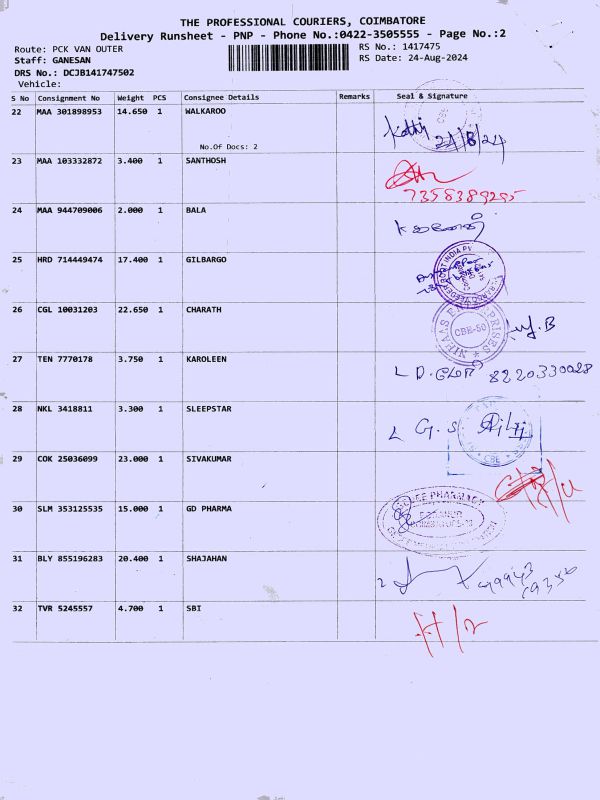 THE PROFESSIONAL COURIERS, COIMBATORE
Delivery Runsheet - PNP - Phone No.:0422-3505555 - Page No.:2
Route: PCK VAN OUTER RS No.: 1417475
Staff: GANESAN RS Date: 24-Aug-2024
DRS No.: DCJB141747502
Vehicle:
S No Consignment No Weight PCS Consignee Details Remarks Seal & Signature
22 MAA 301898953 14.650 1 WALKAROO
No.Of Docs: 2
24/8/24
23 MAA 103332872 3.400 1 SANTHOSH
7358389295
24 MAA 944709006 2.000 1 BALA
25 HRD 714449474 17.400 1 GILBARGO
26 CGL 10031203 22.650 1 CHARATH
CBE-50
27 TEN 7770178 3.750 1 KAROLEEN
8220330028
28 NKL 3418811 3.300 1 SLEEPSTAR
CBE
29 COK 25036099 23.000 1 SIVAKUMAR
30 SLM 353125535 15.000 1 GD PHARMA
PHARMACY
31 BLY 855196283 20.400 1 SHAJAHAN
32 TVR 5245557 4.700 1 SBI